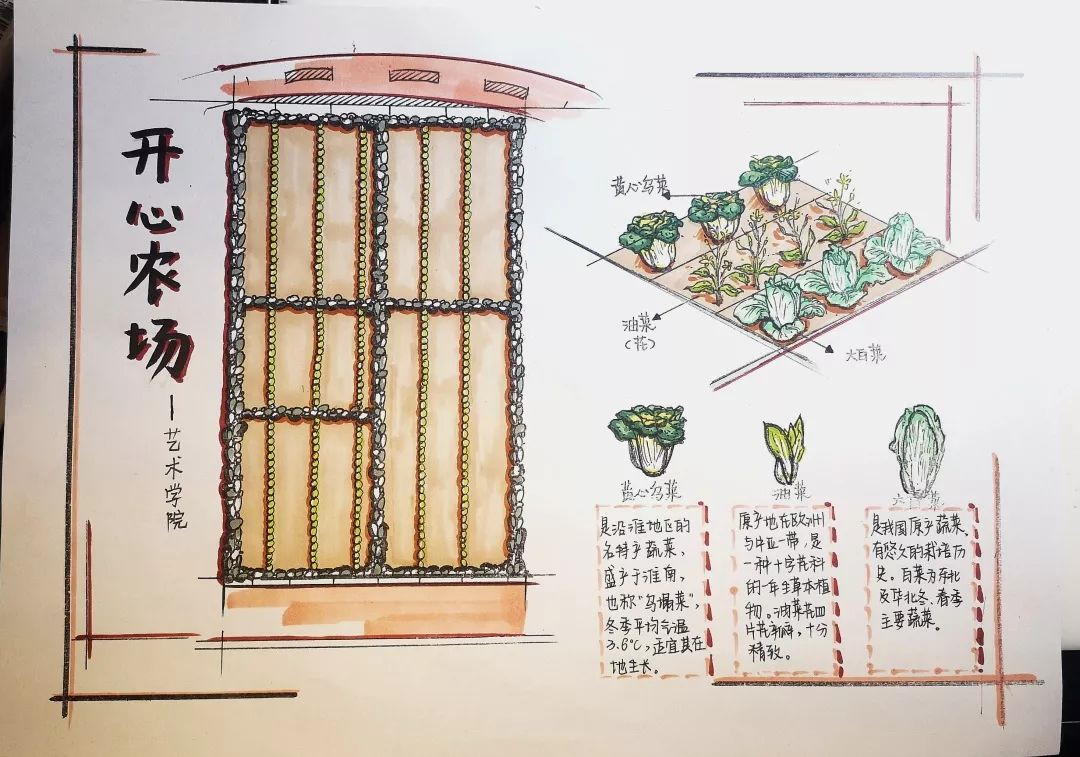 开心农场
—艺术学院
黄心乌菜
油菜
(花)
大白菜
黄心乌菜
油菜
是沿淮地区的
名特产蔬菜,
盛产于淮南,
也称“乌塌菜”,
冬季平均气温
3.6℃,正宜其在
地生长。
原产地在欧洲
与中亚一带,是
一种十字花科
的一年生草本植
物。油菜花四
片花瓣,十分
精致。
是我国原产蔬菜,
有悠久的栽培历
史。白菜为东北
及华北冬、春季
主要蔬菜。